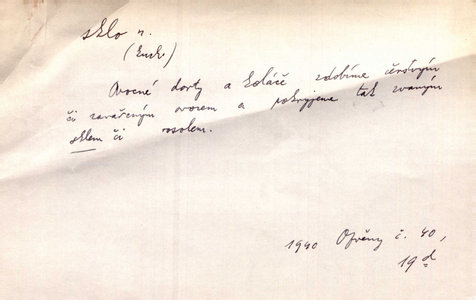 sklo n.
Ovocné dorty a koláče zdobíme čerstvým
či zavařeným ovocem a pokryjeme tak zvaným
sklem či rosolem.
1940 č. 40,
19 d